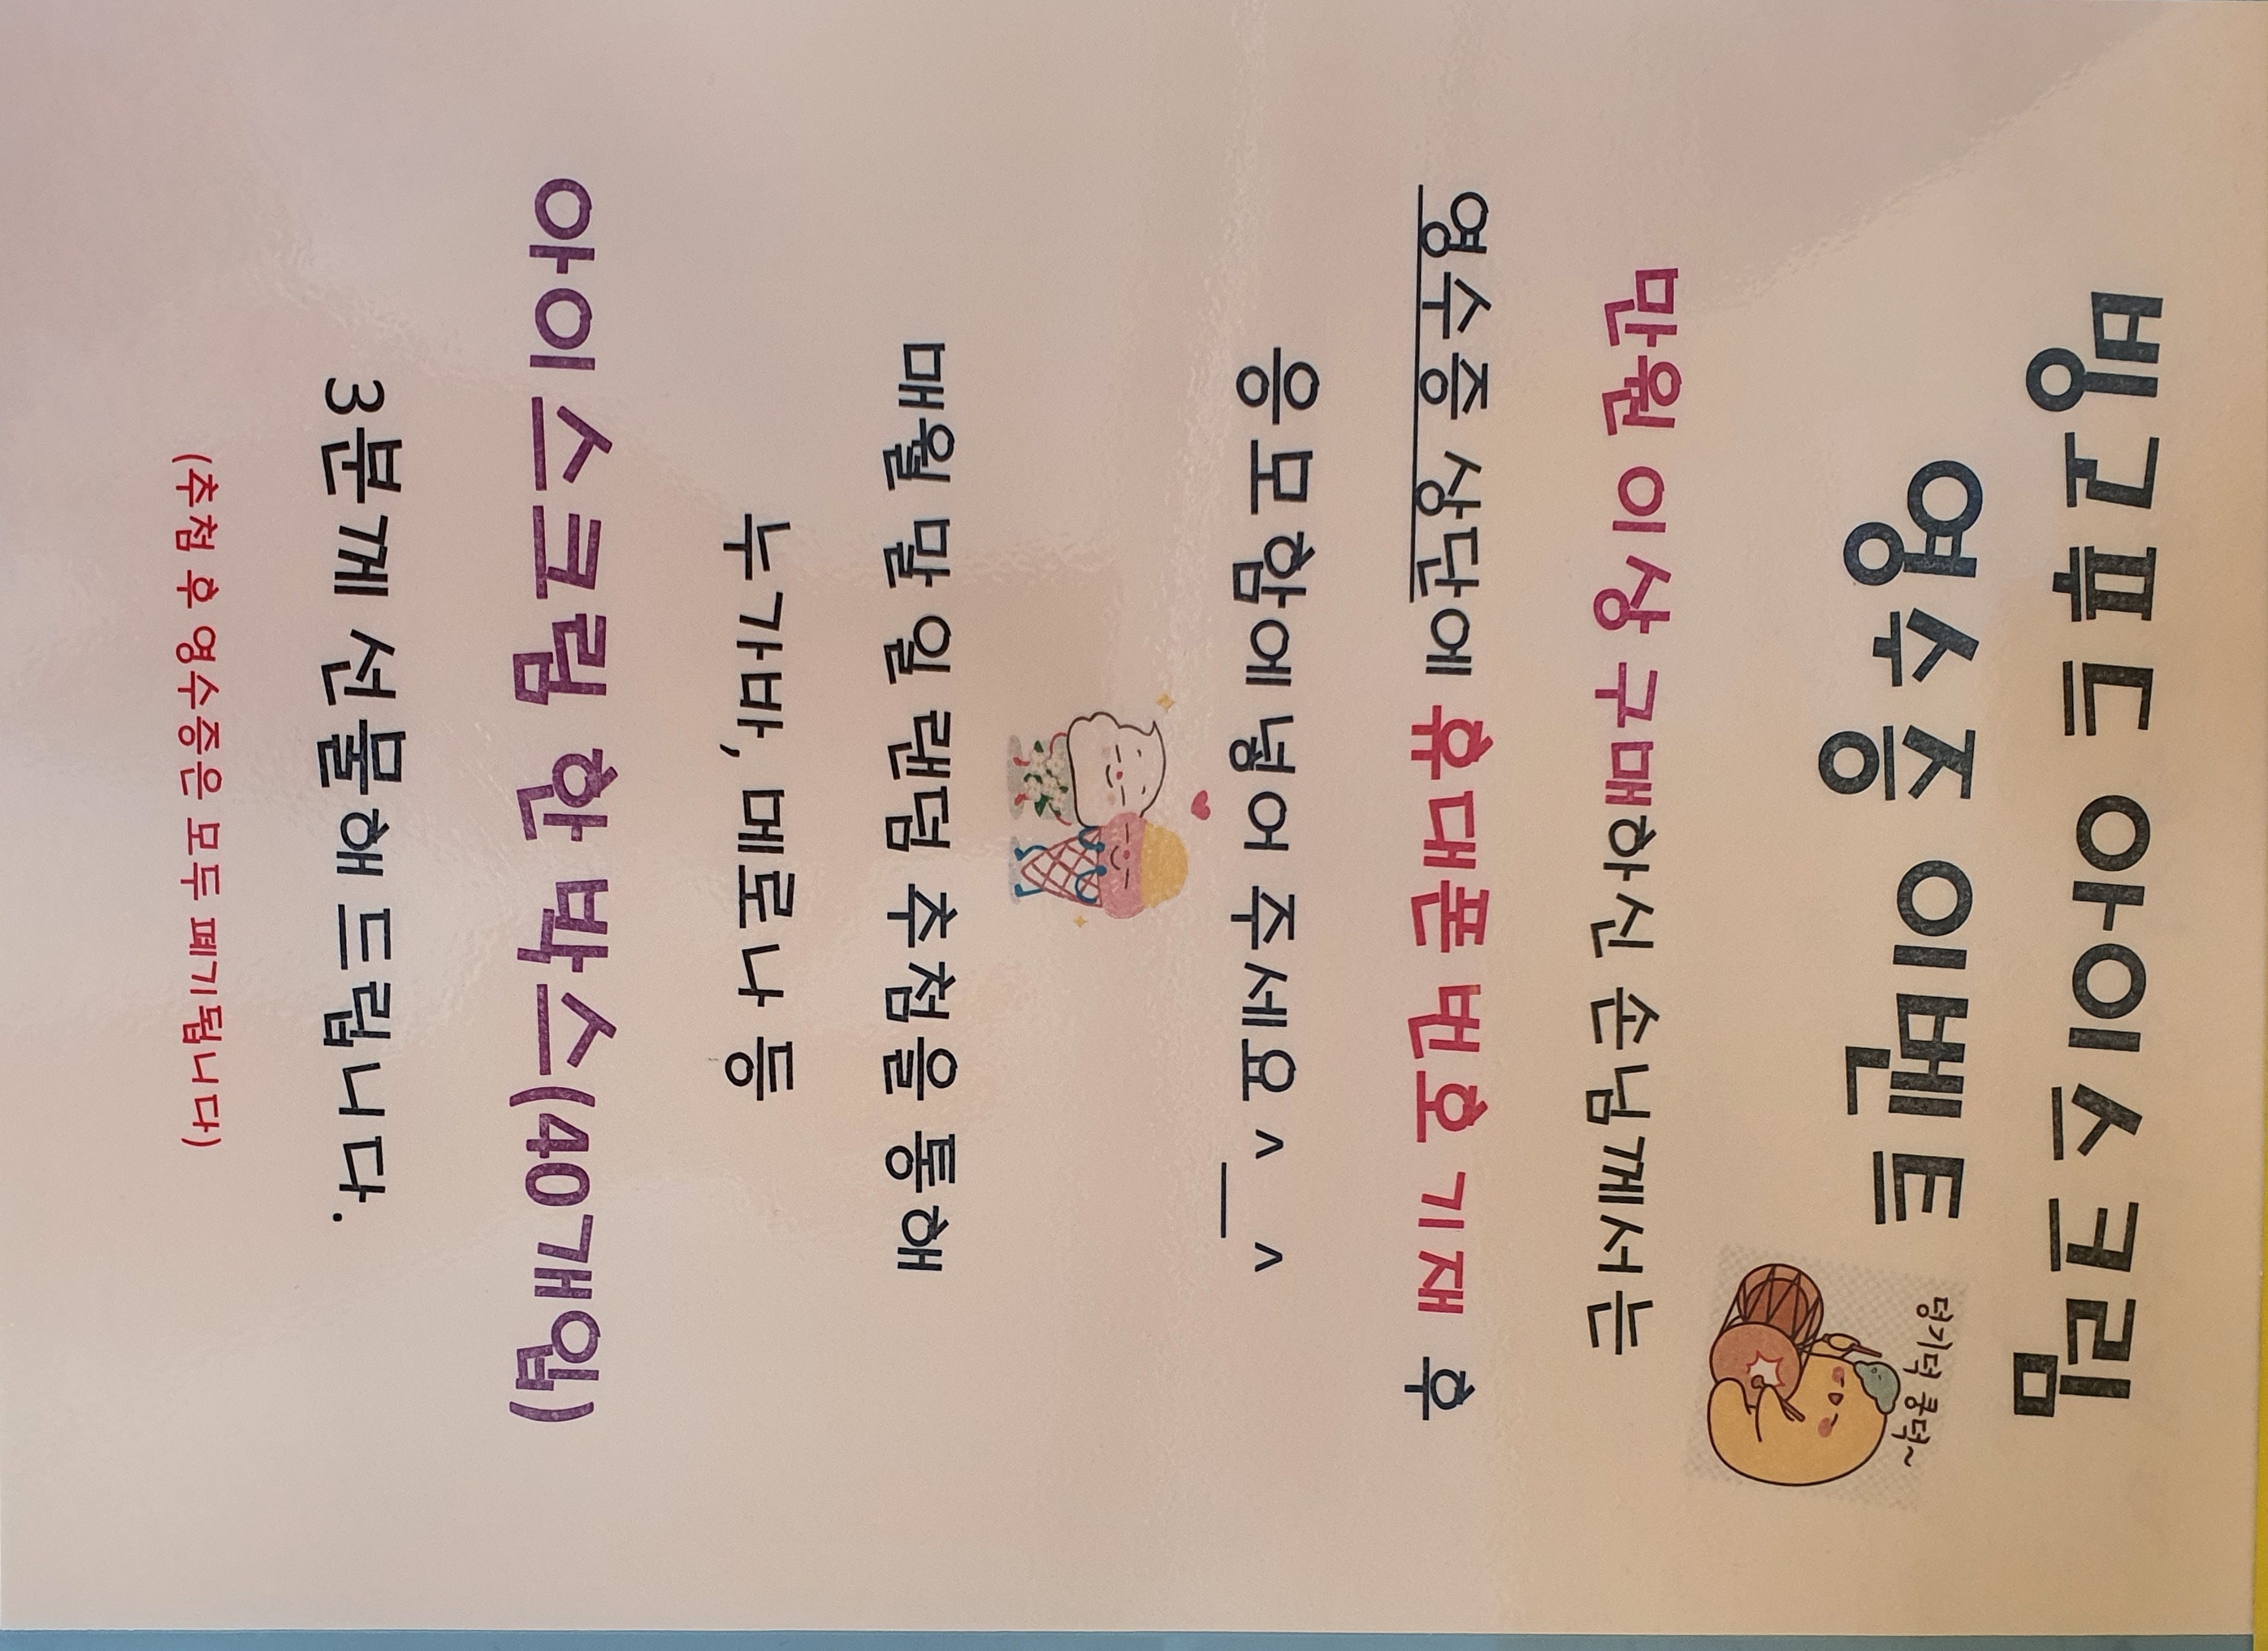 빙고푸드 아이스크림
영수증 이벤트
덩기덕 쿵덕~
만원 이상 구매하신 손님께서는
영수증 상단에 휴대폰 번호 기재 후
응모함에 넣어 주세요 ^__^
매월 말 일 랜덤 추첨을 통해
누가바, 메로나 등
아이스크림 한 박스(40개입)
3분께 선물해 드립니다.
(추첨 후 영수증은 모두 폐기됩니다)